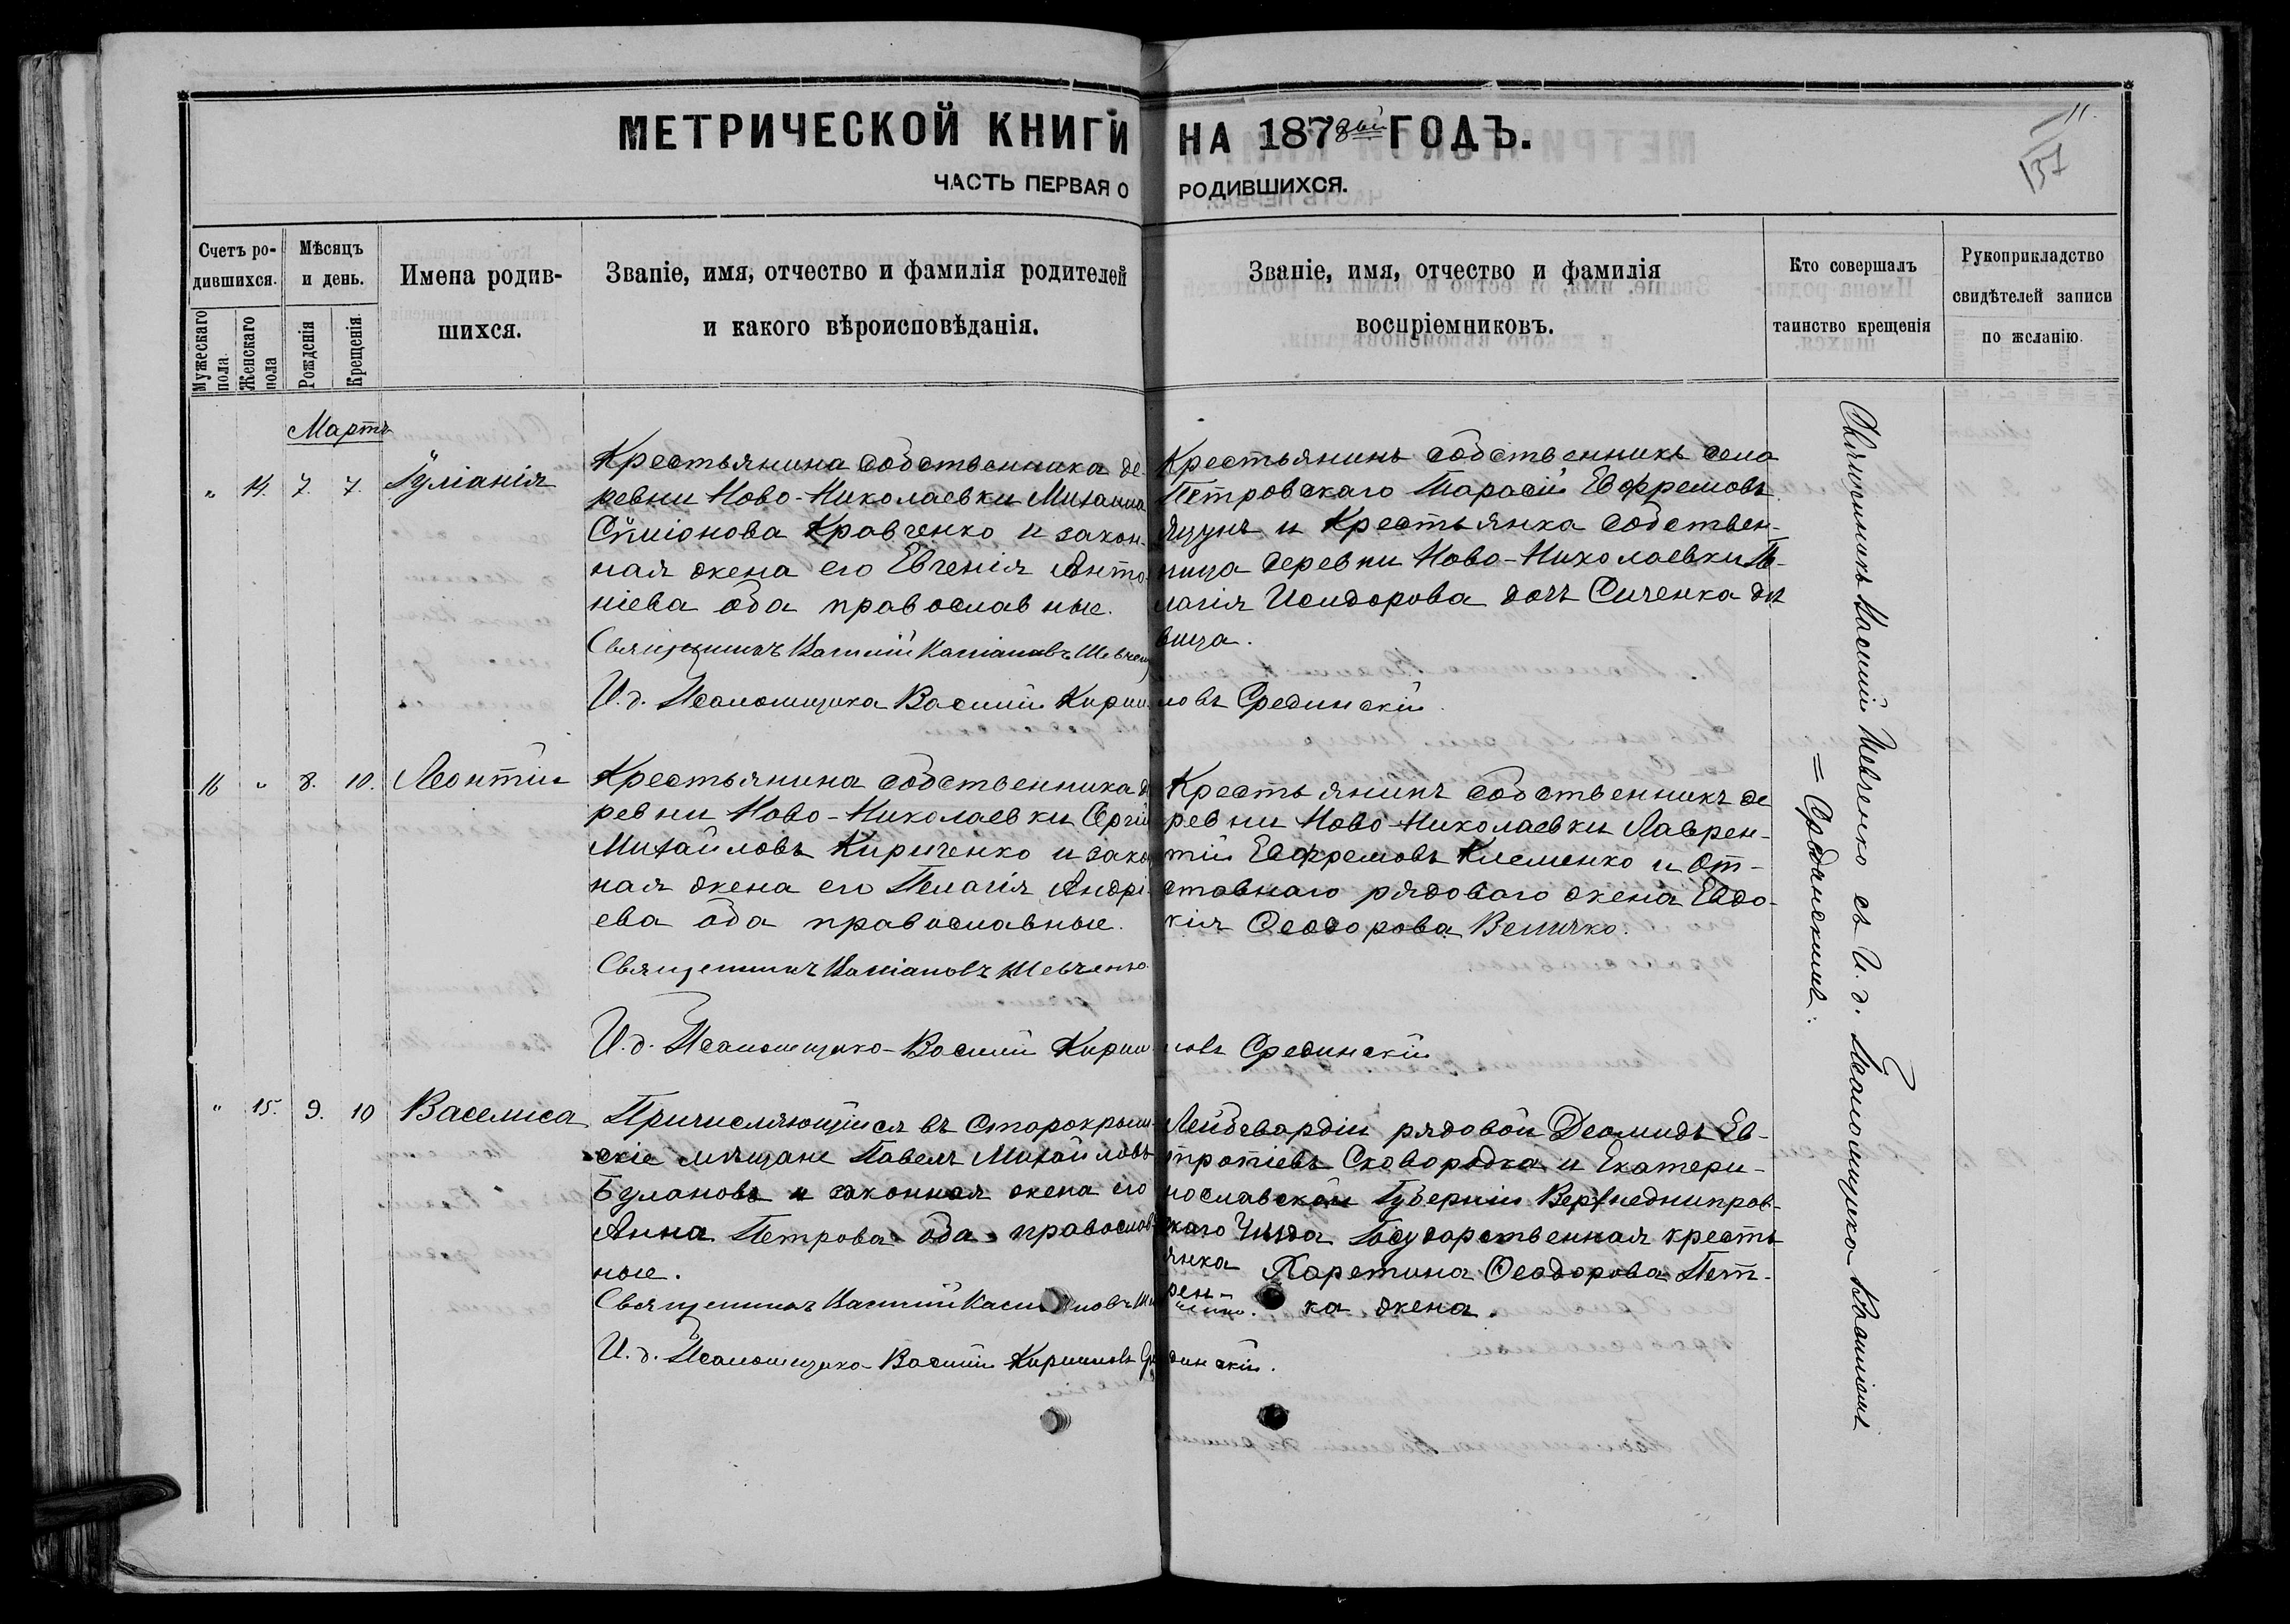 МЕТРИЧЕСКОЙ КНИГИ НА 1878ой ГОДЪ.
ЧАСТЬ ПЕРВАЯ О РОДИВШИХСЯ.
11.
137
Счетъ родившихся.
Мужескаго пола.
Женскаго пола
Мѣсяцъ и день.
Рожденія
Крещенія.
Имена родив-
шихся.
Званіе, имя, отчество и фамилія родителей
и какого вѣроисповѣданія.
Званіе, имя, отчество и фамилія
воспріемниковъ.
Кто совершалъ
таинство крещенія
Рукоприкладство
свидѣтелей записи
по желанію.
Мартъ
" 14. 7. 7. Іуліанія
Крестьянина собственника де
ревни Ново-Николаевки Михаила
Симіонова Кравченко и закон-
ная жена его Евгенія Анто-
ніева оба православные.
Священникъ Василій Касіановъ Шевченко
И. д. Псаломщика Василій Кирилловъ Срединскій.
Крестьянинъ собственникъ села
Петровскаго Тарасій Евфремовъ
Яцунъ и Крестьянка собствен-
ница деревни Ново-Николаевки Пе-
лагія Исидорова дочь Сиченка дѣ
вица.
16 " 8. 10. Леонтій
Крестьянина собственника де
ревни Ново-Николаевки Сергій
Михайловъ Кириченко и закон
ная жена его Пелагія Андрі-
ева оба православные.
Священникъ Касіановъ Шевченко
И. д. Псаломщика Василій Кирилловъ Срединскій
Крестьянинъ собственникъ де
ревни Ново-Николаевки Лаврен-
тій Евфремовъ Клеменко и от-
ставнаго рядоваго жена Евдо-
кія Феодорова Величко.
" 15. 9. 10 Васелиса
Причисляющійся въ Старокрым-
скіе мѣщане Павелъ Михайловъ
Булановъ и законная жена его
Анна Петрова оба православ-
ные.
Священникъ Василій Касіановъ
И. д. Псаломщика Василій Кирилловъ Срединскій.
Лейбгвардіи рядовой Деомидъ Ев-
тропіевъ Сковородка и Екатери-
нославской Губерніи Верхнеднипров-
скаго Уѣзда Государственная кресть
янка Харетина Феодорова Пет-
рен-
ка жена.
Священникъ Василій Шевченко съ И. д. Псаломщика Василіемъ
= Срединскимъ.